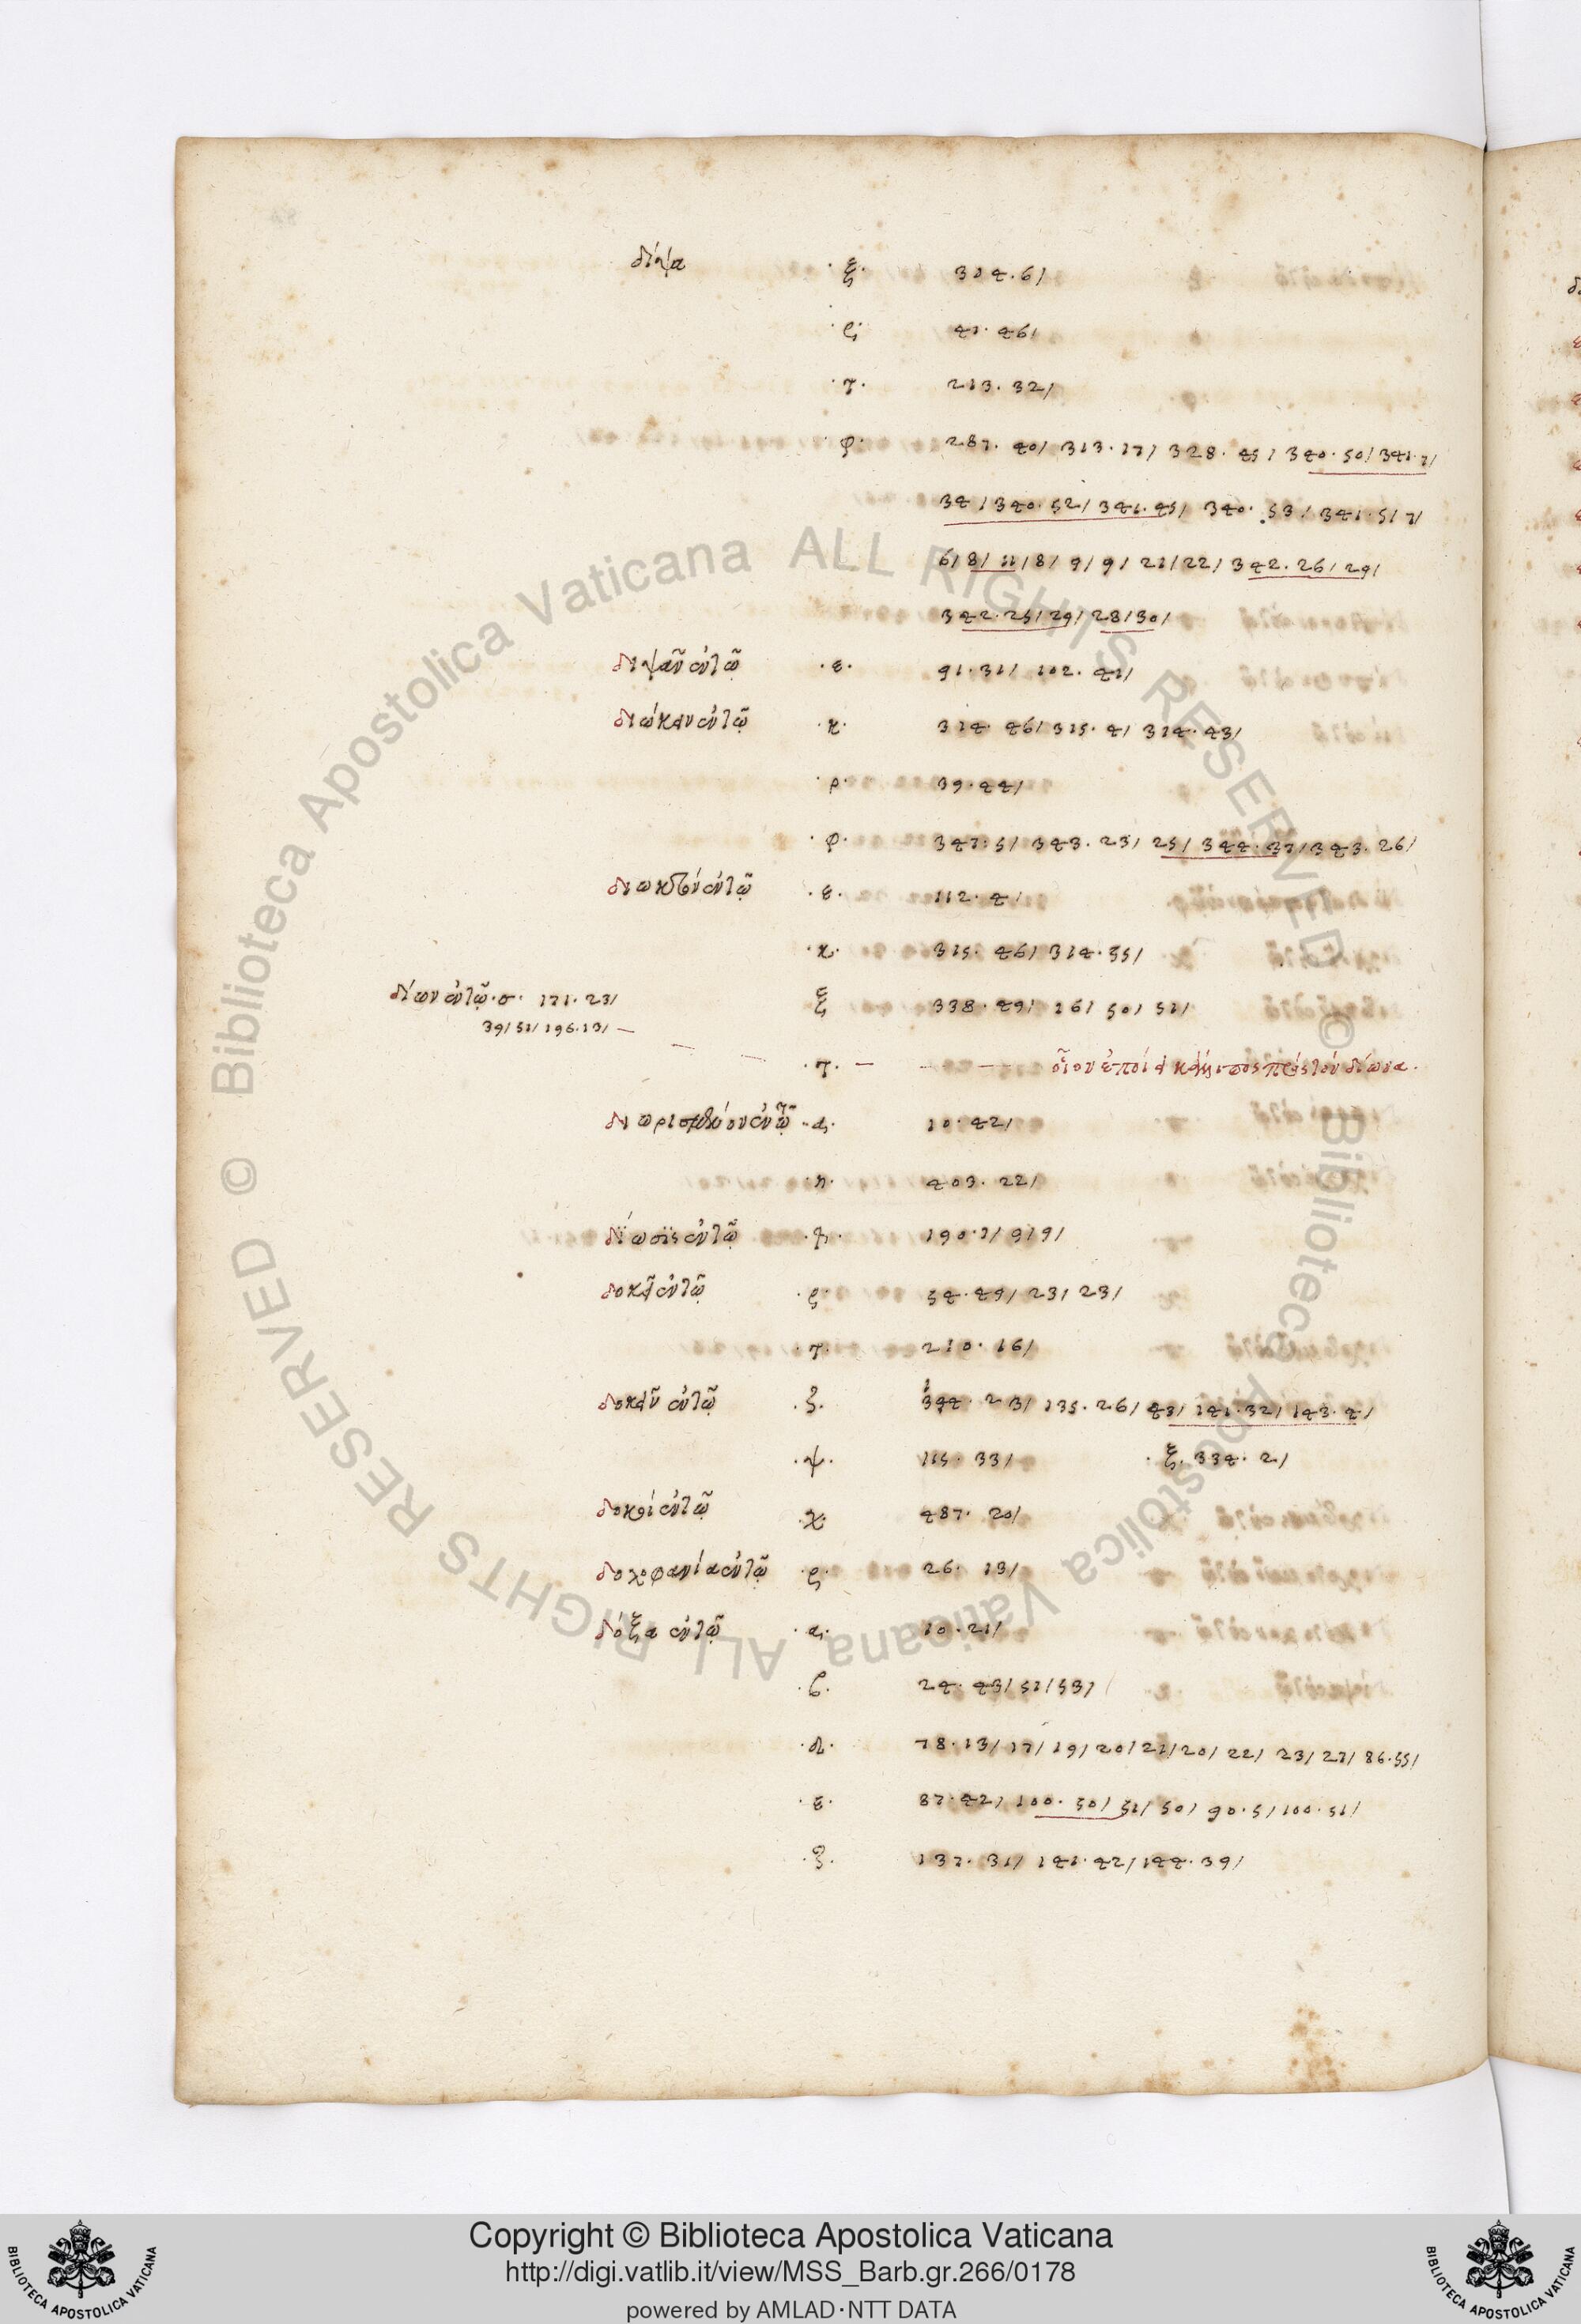 δίψα · ξ · 304. 6/
· ϛ · 41. 46/
· τ · 213. 32/
· φ · 287. 40/ 313. 17/ 328. 45/ 340. 50/ 341. 7/
34/ 340. 52/ 341. 45/ 340. 53/ 341. 5/ 7/
6/ 8/ 11/ 8/ 9/ 9/ 21/ 22/ 342. 26/ 29/
342. 25/ 29/ 28/ 30/
διψᾶν ἐν τῷ · ε · 91. 31/ 102. 41/
διώκαν ἐν τῷ · κ · 314. 46/ 315. 4/ 314. 43/
· ρ · 39. 44/
· φ · 347. 5/ 343. 23/ 25/ 344. 37/ 343. 26/
ἐν τῷ · ε · 112. 4/
· κ · 315. 46/ 314. 55/
δίων ἐν τῷ · σ · 171. 23/ ξ 338. 49/ 16/ 50/ 51/
39/ 51/ 196. 13/ —
· τ · — οἷον ἐποίει κάλιπος πρὸς τὸν δίωνα.
ἐν τῷ · α · 10. 42/
· η · 403. 22/
δίωσις ἐν τῷ 190. 7/ 9/ 9/
ἐν τῷ · ϛ · 54. 49/ 23/ 23/
· τ · 210. 16/
δοκεῖν ἐν τῷ · ζ · 23/ 135. 26/ 43/ 141. 32/ 143. 4/
· ψ · 115. 33/ · ξ · 334. 2/
ἐν τῷ · χ · 487. 20/
ἐν τῷ · ϛ · 26. 13/
δόξα ἐν τῷ · α · 10. 21/
· β · 24. 43/ 51/ 53/
· δ · 78. 13/ 17/ 19/ 20/ 21/ 20/ 22/ 23/ 27/ 86. 55/
· ε · 87. 42/ 100. 50/ 51/ 50/ 90. 5/ 100. 51/
· ζ · 137. 31/ 141. 42/ 144. 39/
© Biblioteca Apostolica Vaticana ALL RIGHTS RESERVED © Biblioteca Apostolica Vaticana ALL RIGHTS RESERVED
Copyright © Biblioteca Apostolica Vaticana
http://digi.vatlib.it/view/MSS_Barb.gr.266/0178
powered by AMLAD·NTT DATA
BIBLIOTECA APOSTOLICA VATICANA
BIBLIOTECA APOSTOLICA VATICANA